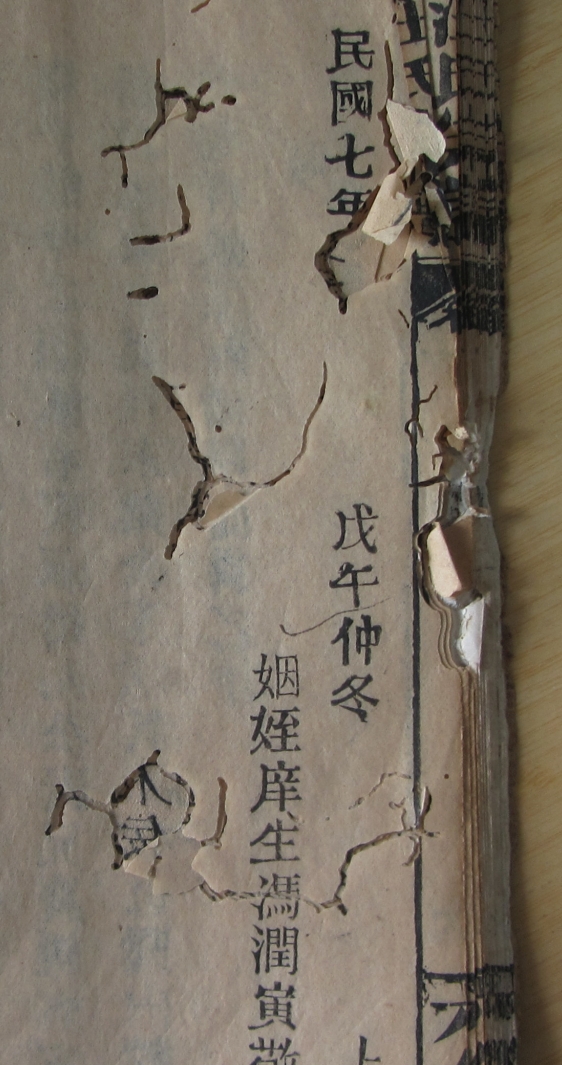 民國七年 戊午仲冬 上
姻姪庠生馮潤寅敬